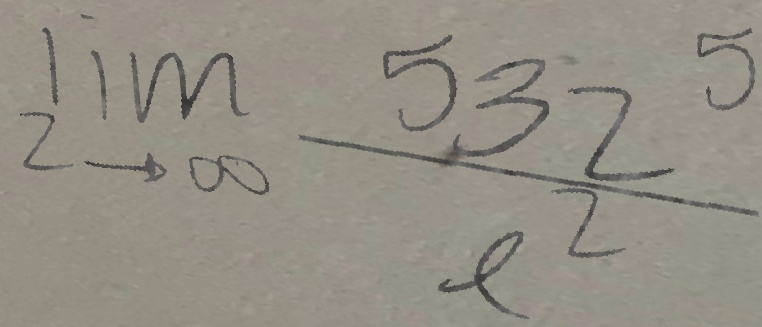 lim z→∞ 53z^5 / e^z